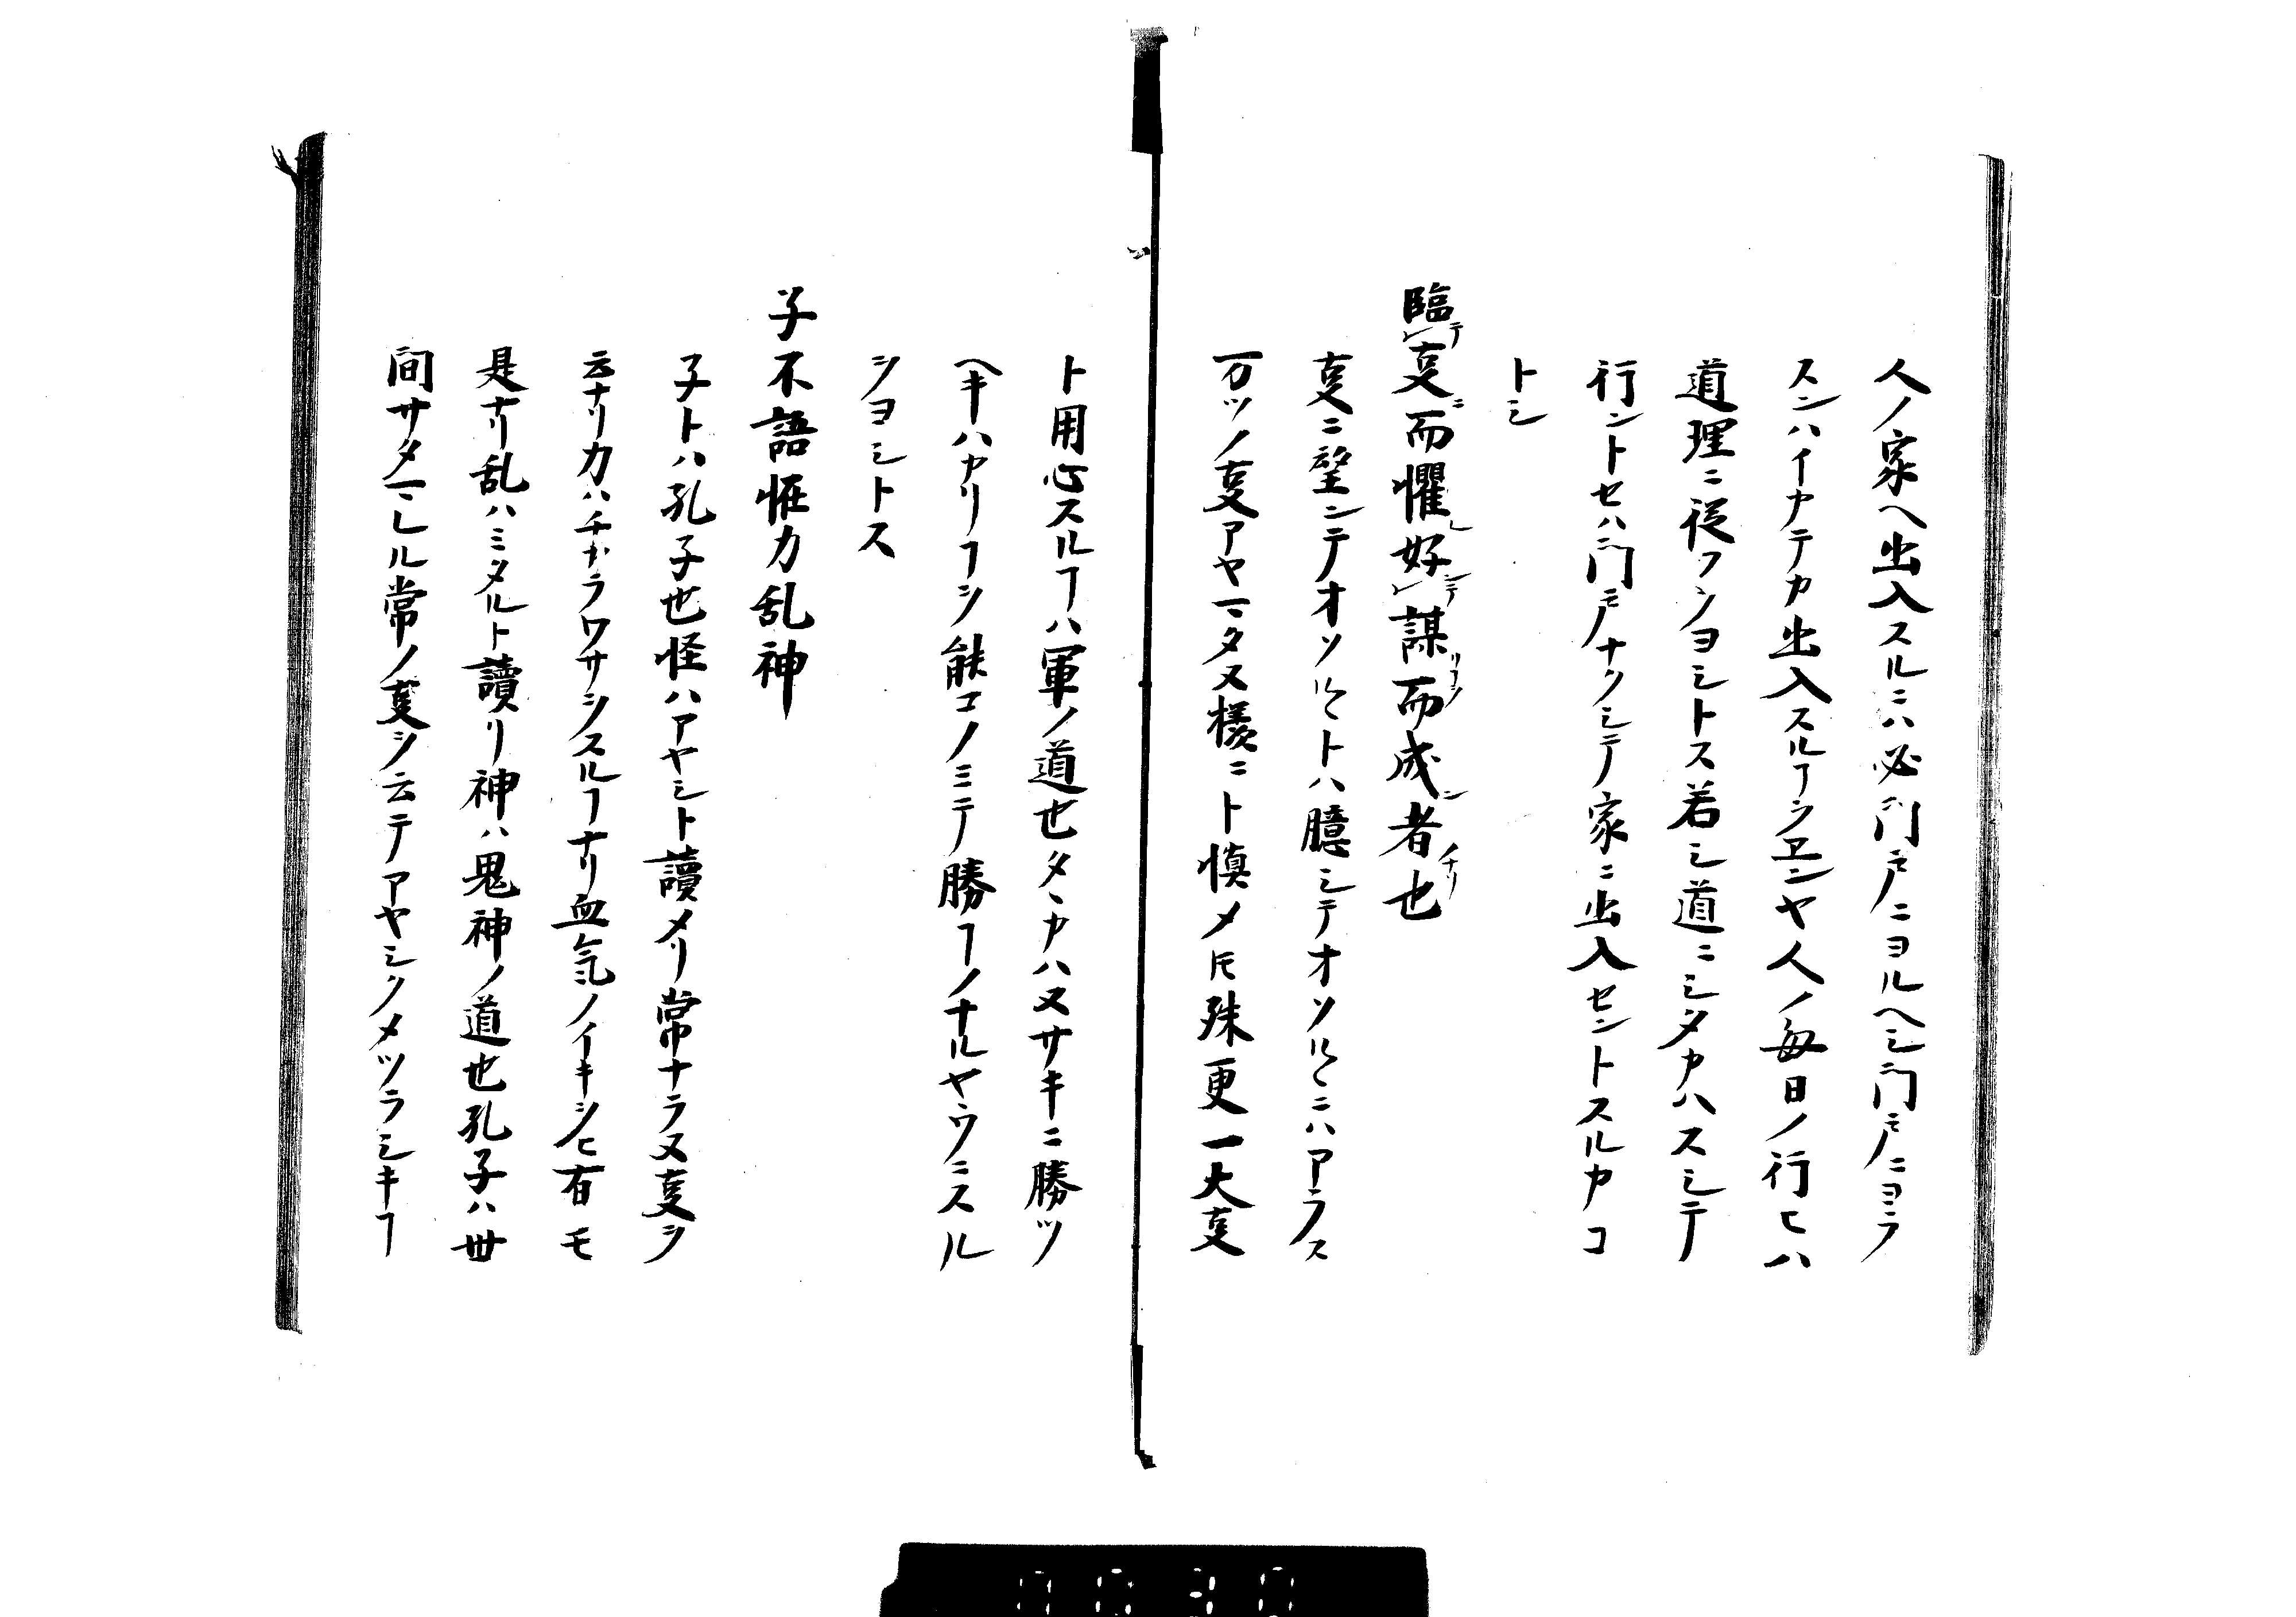 人ノ家ヘ出入スルニハ必門戸ニヨルヘシ門戸ニヨラ
スンハイカテカ出入スルヿヲヱンヤ人ノ毎日ノ行ヒハ
道理ニ従フヲヨシトス若シ道ニシタカハスシテ
行ントセハ門戸ナクシテ家ニ出入セントスルカコ
トシ
臨テレ㕝ニ而懼レ好テレ謀リコヲ而成ン者ナリ也
㕝ニ望ンテオソルヽトハ臆シテオソルヽニハアラス
万ツノ㕝アヤマタヌ様ニト慎メ𪜈殊更一大㕝
ト用心スルヿハ軍ノ道也タヽカハヌサキニ勝ツ
ヘキハカリヿヲ能コノミテ勝ヿノナルヤウニスル
ヲヨシトス
子不語恠力乱神
子トハ孔子也怪ハアヤシト讀メリ常ナラヌ㕝ヲ
云ナリ力ハチカラワサヲスルヿナリ血気ノイキヲヒ有モ
是ナリ乱ハミタルト讀リ神ハ鬼神ノ道也孔子ハ世
間サタマレル常ノ㕝ヲ云テアヤシクメツラシキヿ